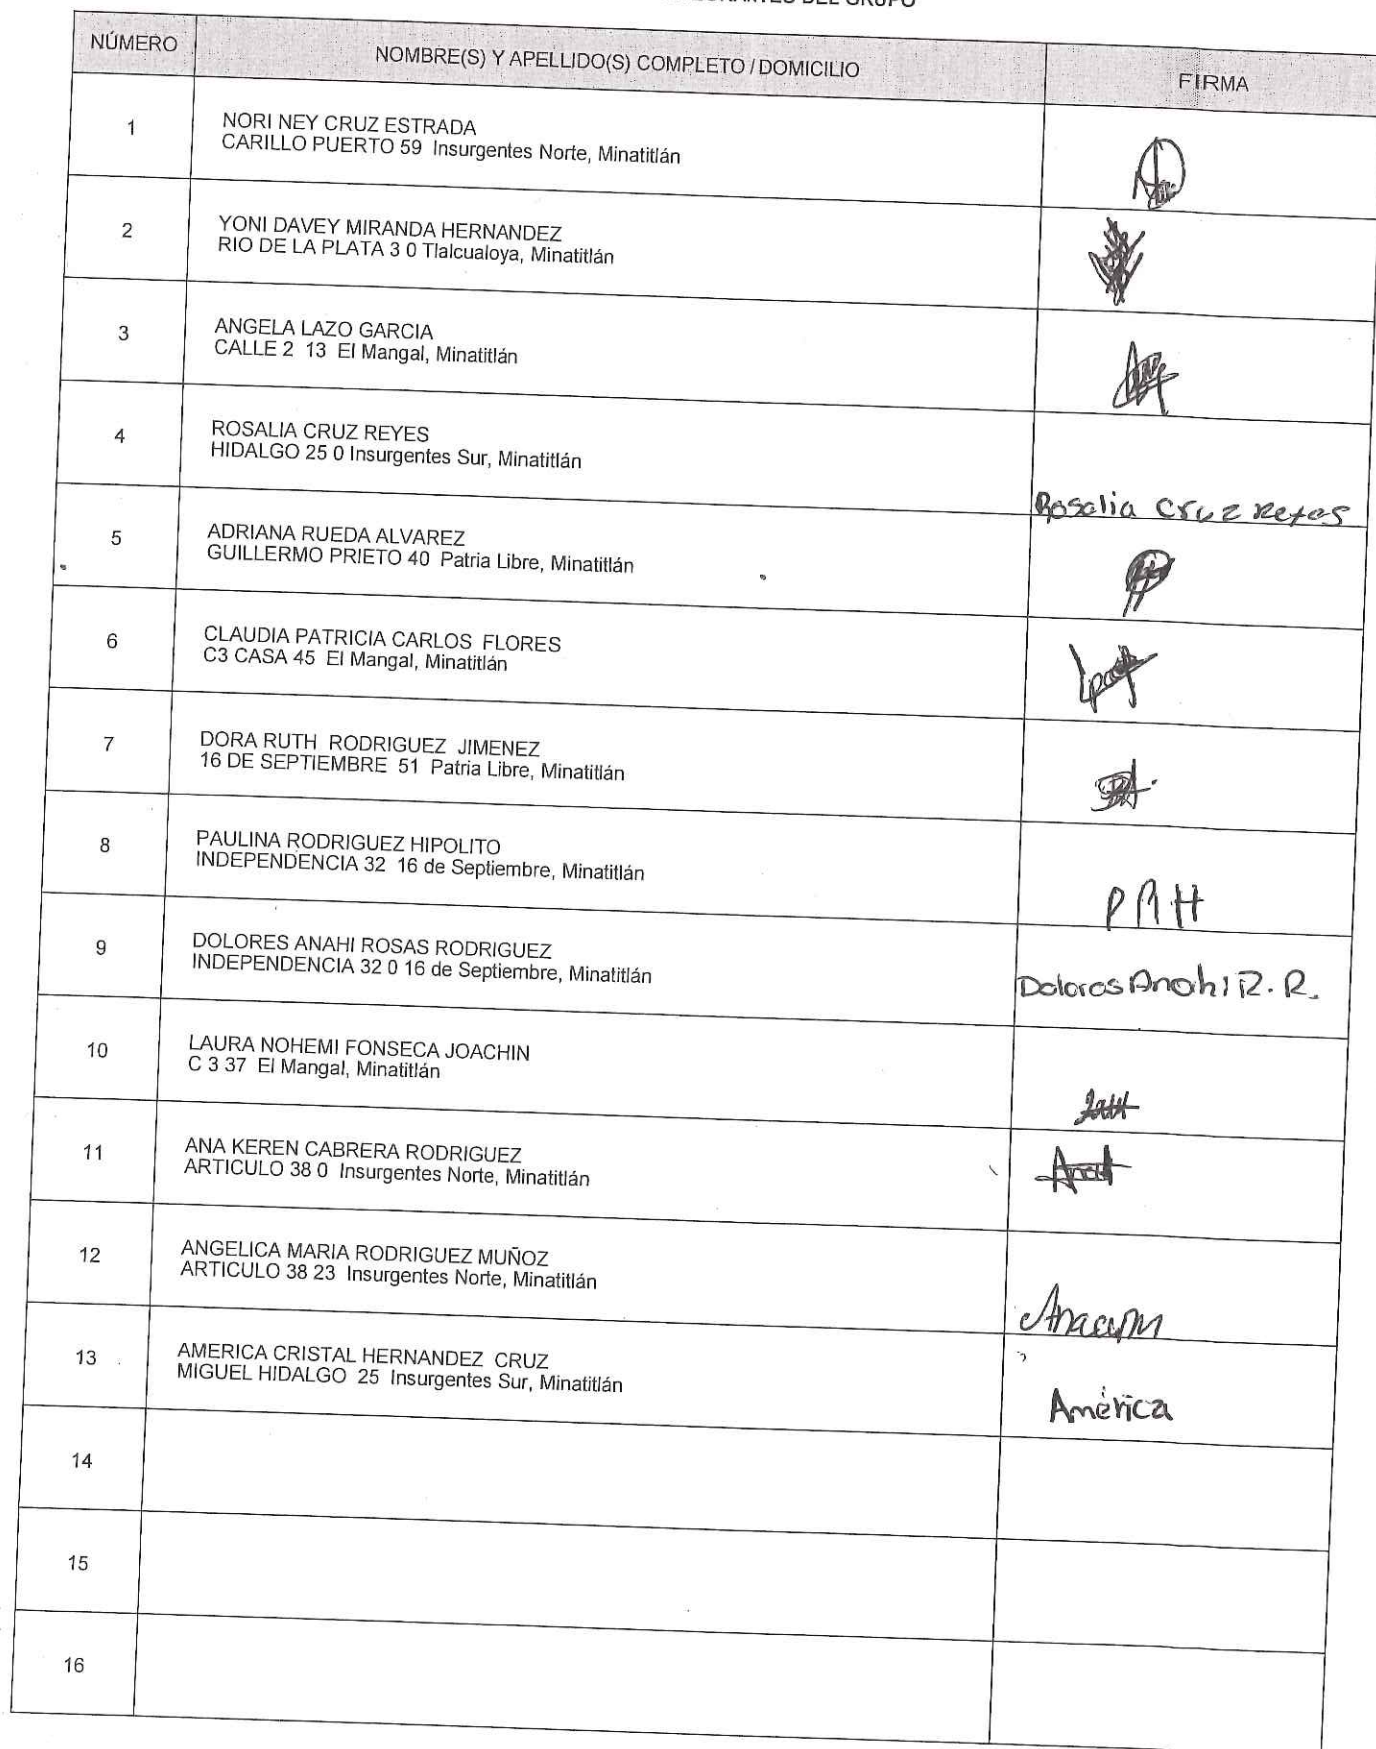 DEL GRUPO
NÚMERO NOMBRE(S) Y APELLIDO(S) COMPLETO / DOMICILIO FIRMA
1 NORI NEY CRUZ ESTRADA
CARILLO PUERTO 59 Insurgentes Norte, Minatitlán
2 YONI DAVEY MIRANDA HERNANDEZ
RIO DE LA PLATA 3 0 Tlalcualoya, Minatitlán
3 ANGELA LAZO GARCIA
CALLE 2 13 El Mangal, Minatitlán
4 ROSALIA CRUZ REYES
HIDALGO 25 0 Insurgentes Sur, Minatitlán
Rosalia Cruz Reyes
5 ADRIANA RUEDA ALVAREZ
GUILLERMO PRIETO 40 Patria Libre, Minatitlán
6 CLAUDIA PATRICIA CARLOS FLORES
C3 CASA 45 El Mangal, Minatitlán
7 DORA RUTH RODRIGUEZ JIMENEZ
16 DE SEPTIEMBRE 51 Patria Libre, Minatitlán
8 PAULINA RODRIGUEZ HIPOLITO
INDEPENDENCIA 32 16 de Septiembre, Minatitlán
PRH
9 DOLORES ANAHI ROSAS RODRIGUEZ
INDEPENDENCIA 32 0 16 de Septiembre, Minatitlán
Dolores Anahi R. R.
10 LAURA NOHEMI FONSECA JOACHIN
C 3 37 El Mangal, Minatitlán
11 ANA KEREN CABRERA RODRIGUEZ
ARTICULO 38 0 Insurgentes Norte, Minatitlán
12 ANGELICA MARIA RODRIGUEZ MUÑOZ
ARTICULO 38 23 Insurgentes Norte, Minatitlán
13 AMERICA CRISTAL HERNANDEZ CRUZ
MIGUEL HIDALGO 25 Insurgentes Sur, Minatitlán
América
14
15
16